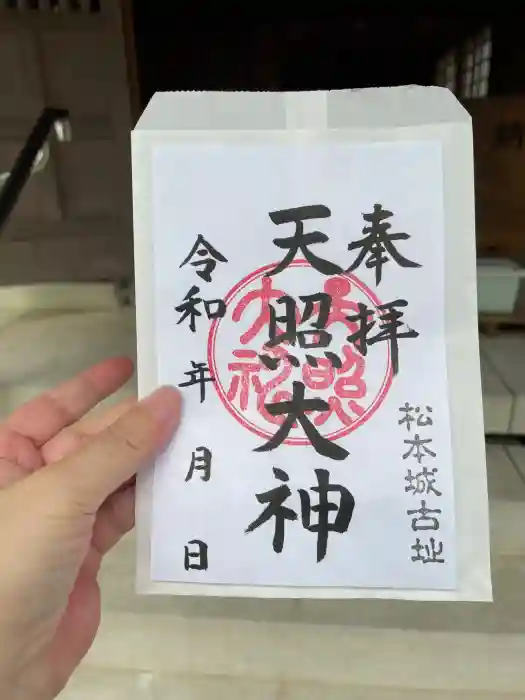 奉拝
天照大神
松本城古址
令和 年 月 日
天照
大神